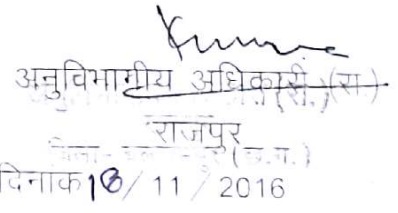 अनुविभागीय अधिकारी (रा.)
राजपुर
(छ.ग.)
दिनाक 18/ 11 / 2016